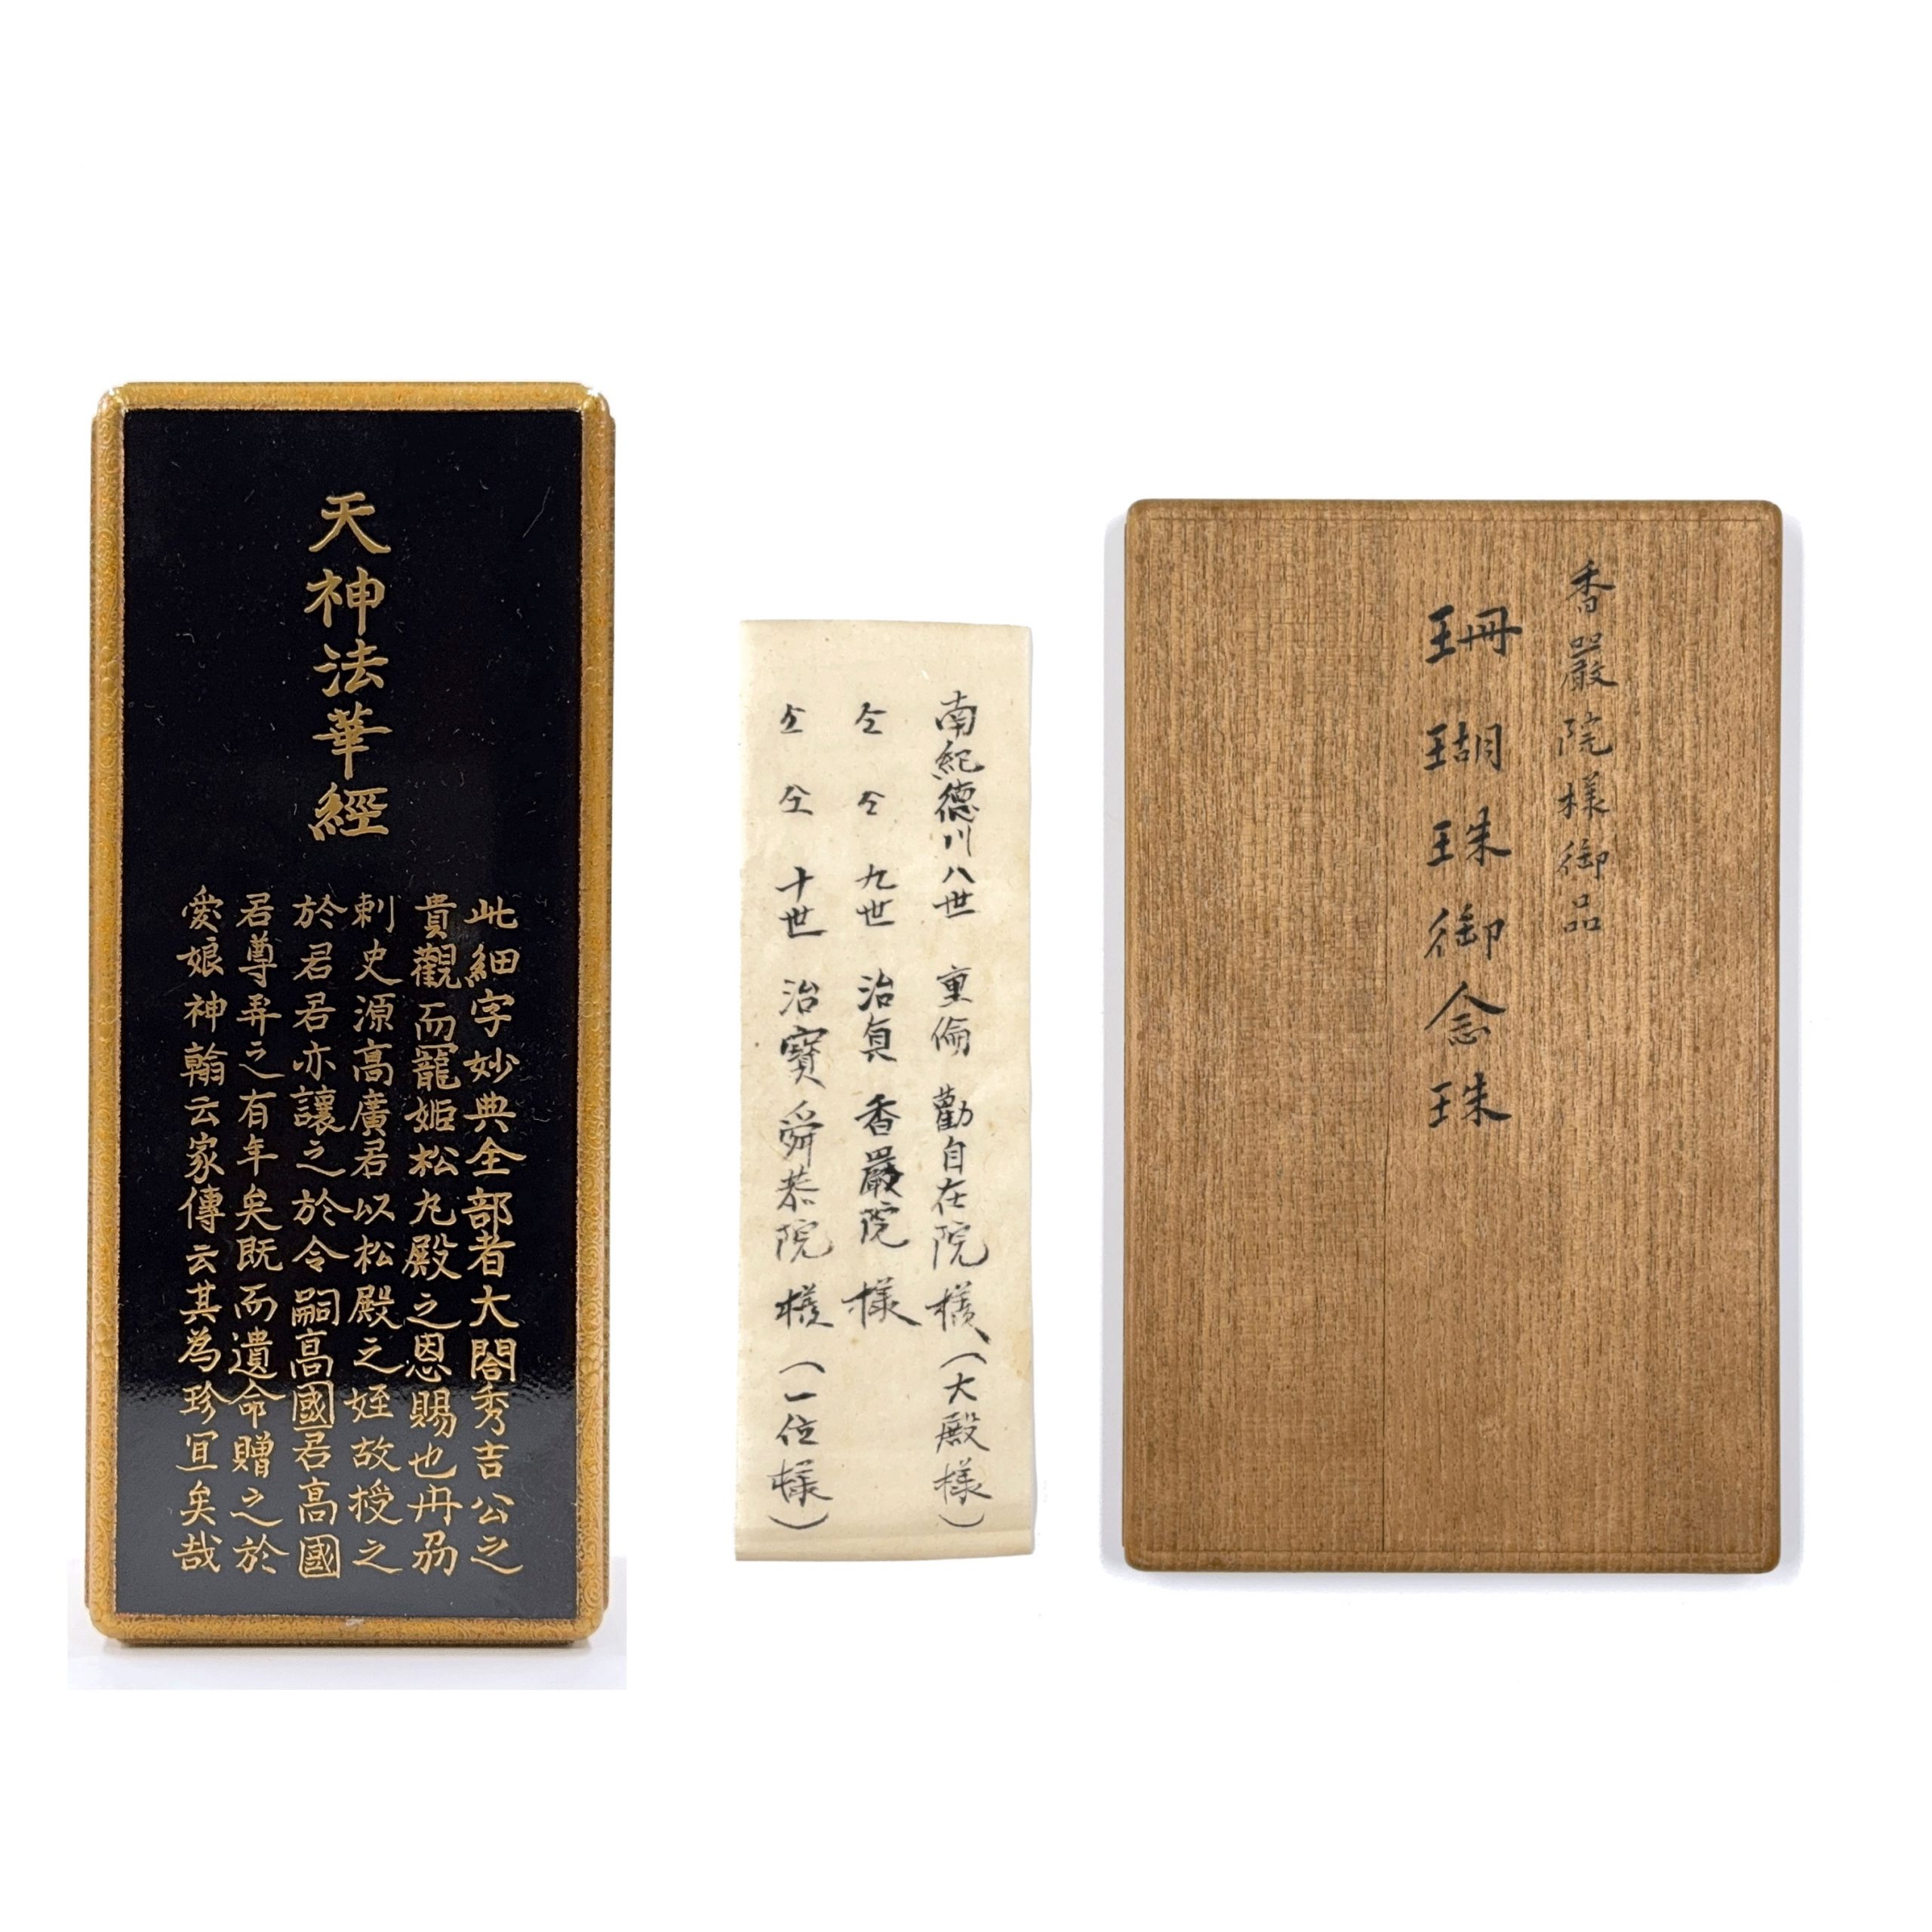 天神法華經
此細字妙典全部者大閤秀吉公之
貴觀而寵姬松丸殿之恩賜也丹刕
刺史源高廣君以松殿之姪故授之
於君君亦讓之於令嗣高國君高國
君尊弆之有年矣既而遺命贈之於
愛娘神翰云家傳云其為珍冝矣哉
南紀德川八世 重倫 觀自在院様(大殿様)
仝 仝 九世 治貞 香嚴院 様
仝 仝 十世 治寶 舜恭院 様(一位様)
香嚴院様御品
珊瑚珠御念珠